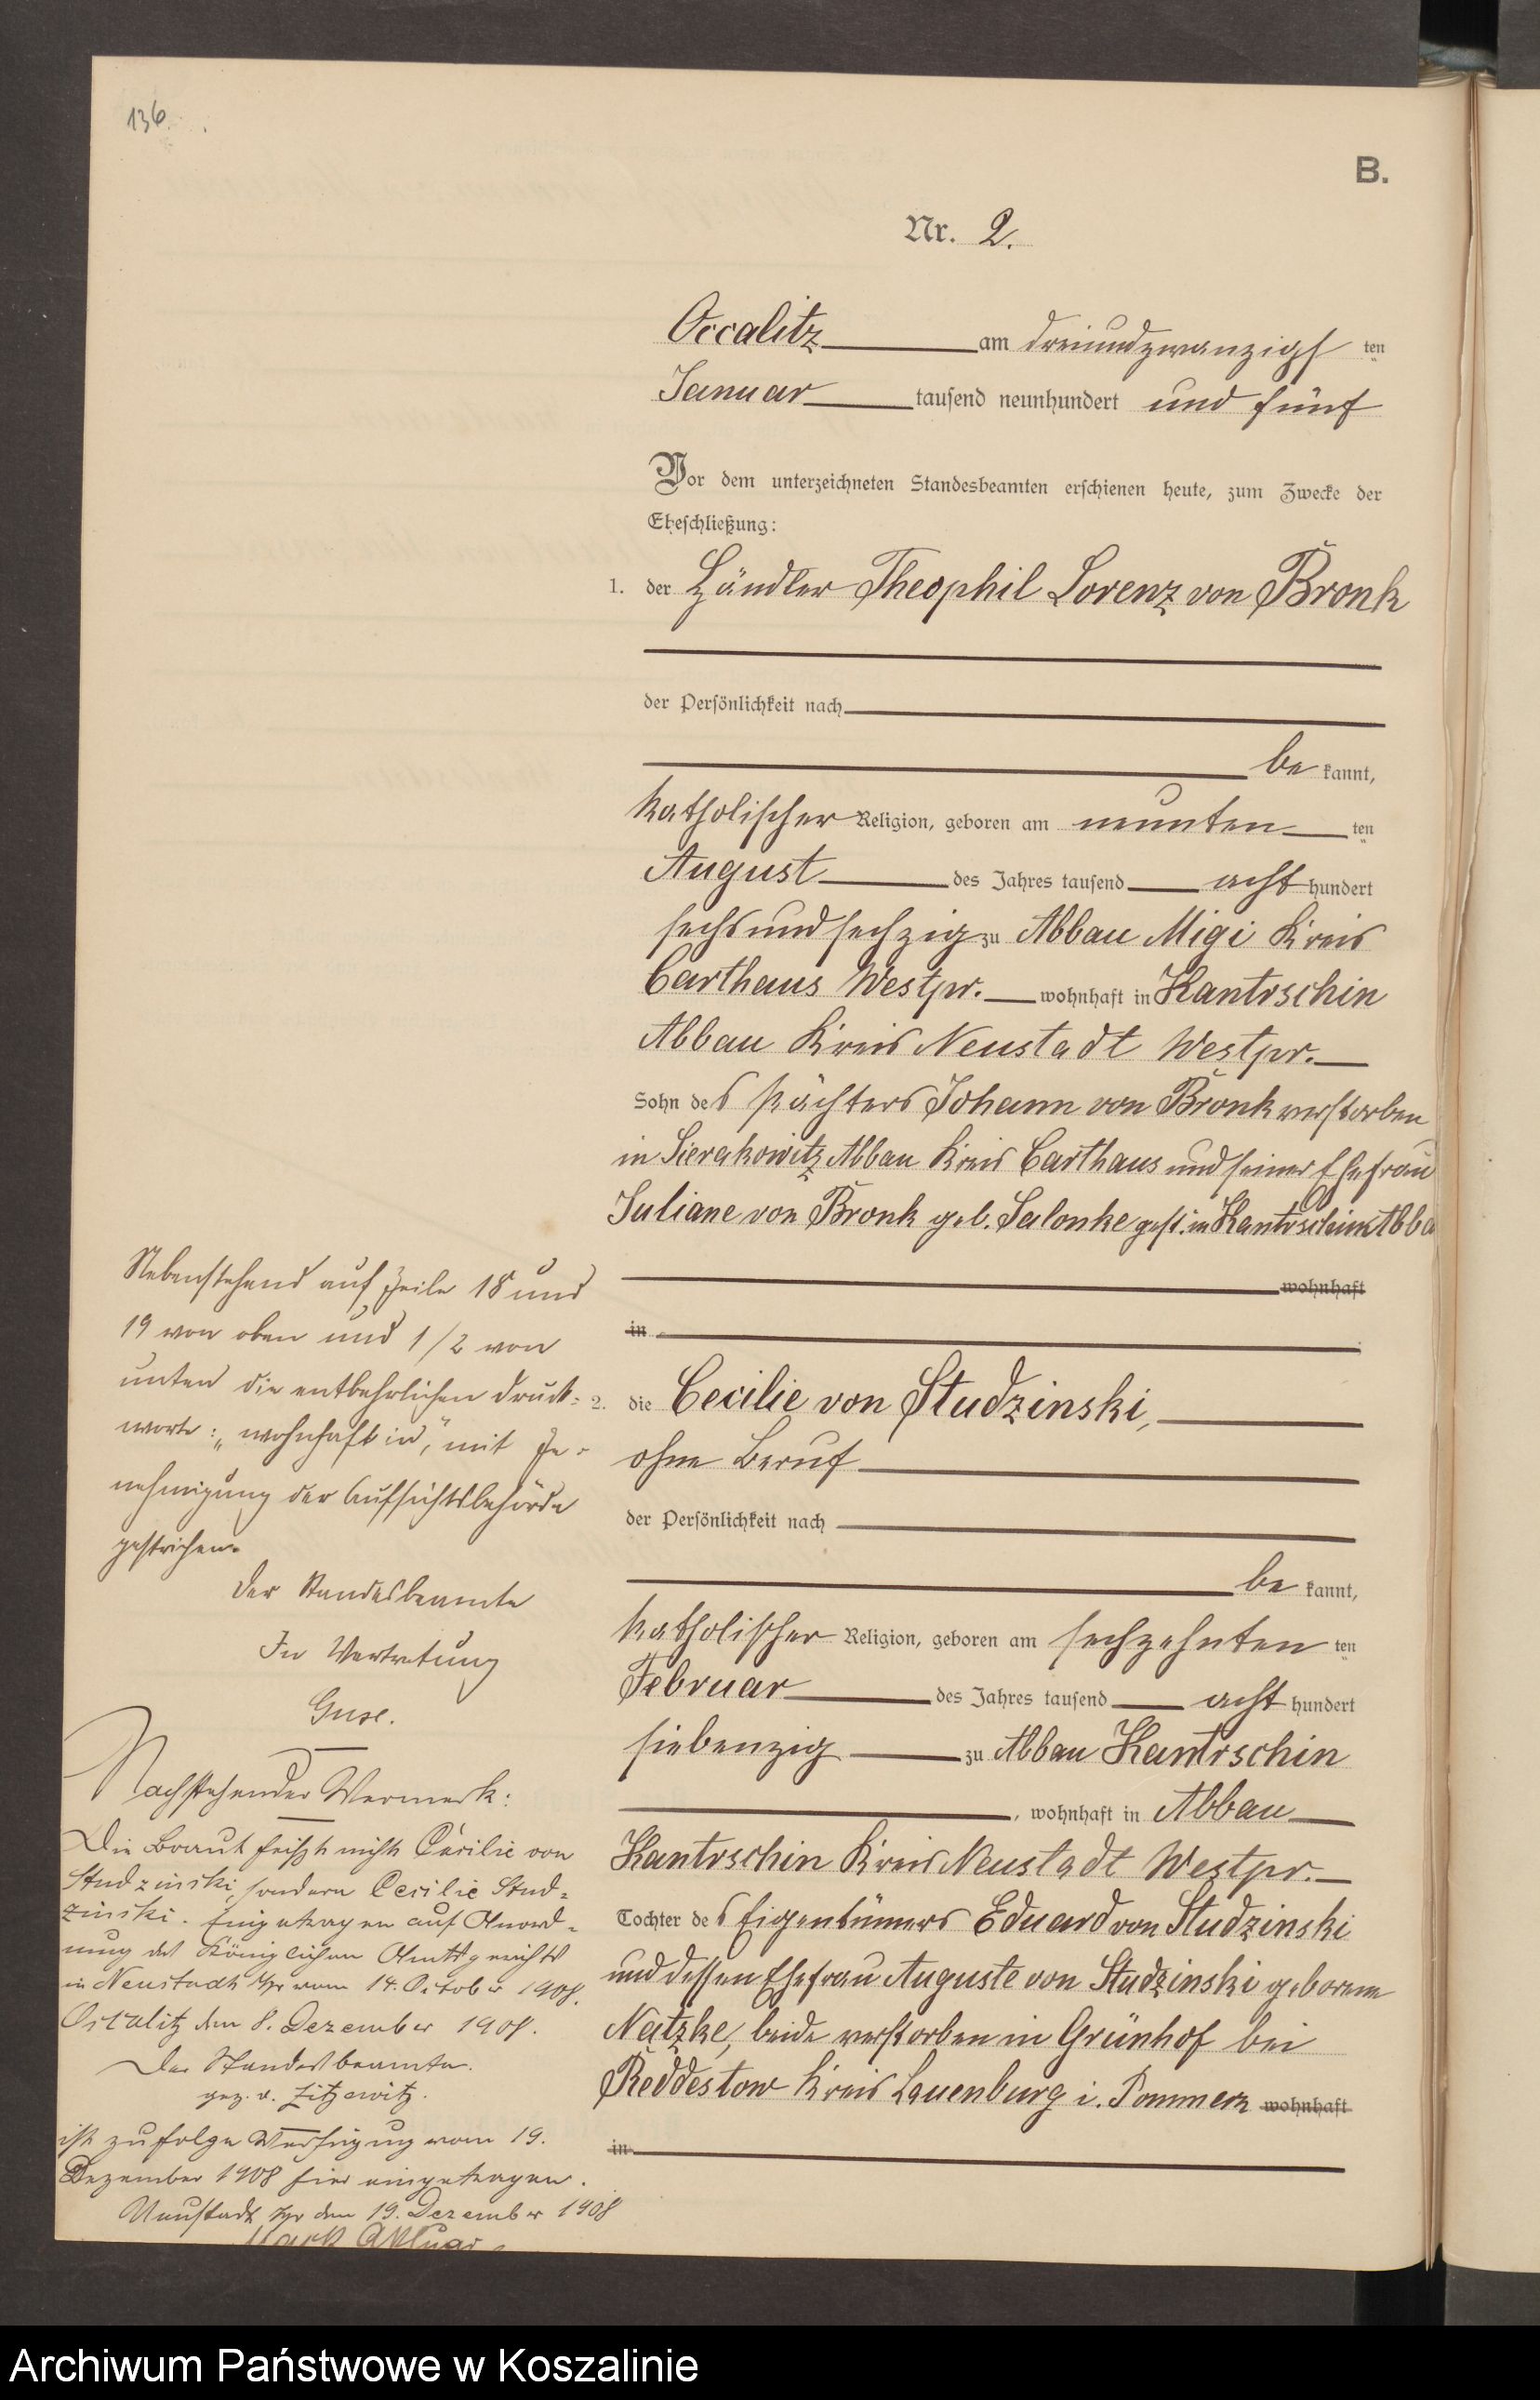 136.
B.
Nr. 2.
Occalitz am dreiundzwanzigs ten
Januar tausend neunhundert und fünf
Vor dem unterzeichneten Standesbeamten erschienen heute, zum Zwecke der
Eheschließung:
1. der Händler Theophil Lorenz von Bronk
der Persönlichkeit nach
be kannt,
katholischer Religion, geboren am neunten ten
August des Jahres tausend acht hundert
sechsundsechzig zu Abbau Migi Kreis
Carthaus Westpr. wohnhaft in Kantrschin
Abbau Kreis Neustadt Westpr.
Sohn des Pächters Johann von Bronk verstorben
in Sierakowitz Abbau Kreis Carthaus und seiner Ehefrau
Juliane von Bronk geb. Salonke gest. in Kantrschin Abba
wohnhaft
in
2. die Cecilie von Studzinski,
ohne Beruf
der Persönlichkeit nach
be kannt,
katholischer Religion, geboren am sechzehnten ten
Februar des Jahres tausend acht hundert
siebenzig zu Abbau Kantrschin
, wohnhaft in Abbau
Kantrschin Kreis Neustadt Westpr.
Tochter des Eigentümers Eduard von Studzinski
und dessen Ehefrau Auguste von Studzinski geborene
Natzke, beide verstorben in Grünhof bei
Reddestow Kreis Lauenburg i. Pommern wohnhaft
in
Nebenstehend auf Zeile 18 und
19 von oben und 1/2 von
unten die entbehrlichen Druck-
worte: „wohnhaft in", mit Ge-
nehmigung der Aufsichtsbehörde
gestrichen.
Der Standesbeamte
In Vertretung
Guse.
Nachstehender Vermerk:
Die Braut heißt nicht Cäcilie von
Studzinski, sondern Cecilie Stud-
zinski. Eingetragen auf Anord-
nung des Königlichen Amtsgerichts
in Neustadt Wpr vom 14. October 1908.
Occalitz den 8. Dezember 1908.
Der Standesbeamte.
gez. v. Zitzewitz.
ist zufolge Verfügung vom 19.
Dezember 1908 hier eingetragen.
Neustadt Wpr den 19. Dezember 1908
Aktuar
Archiwum Państwowe w Koszalinie